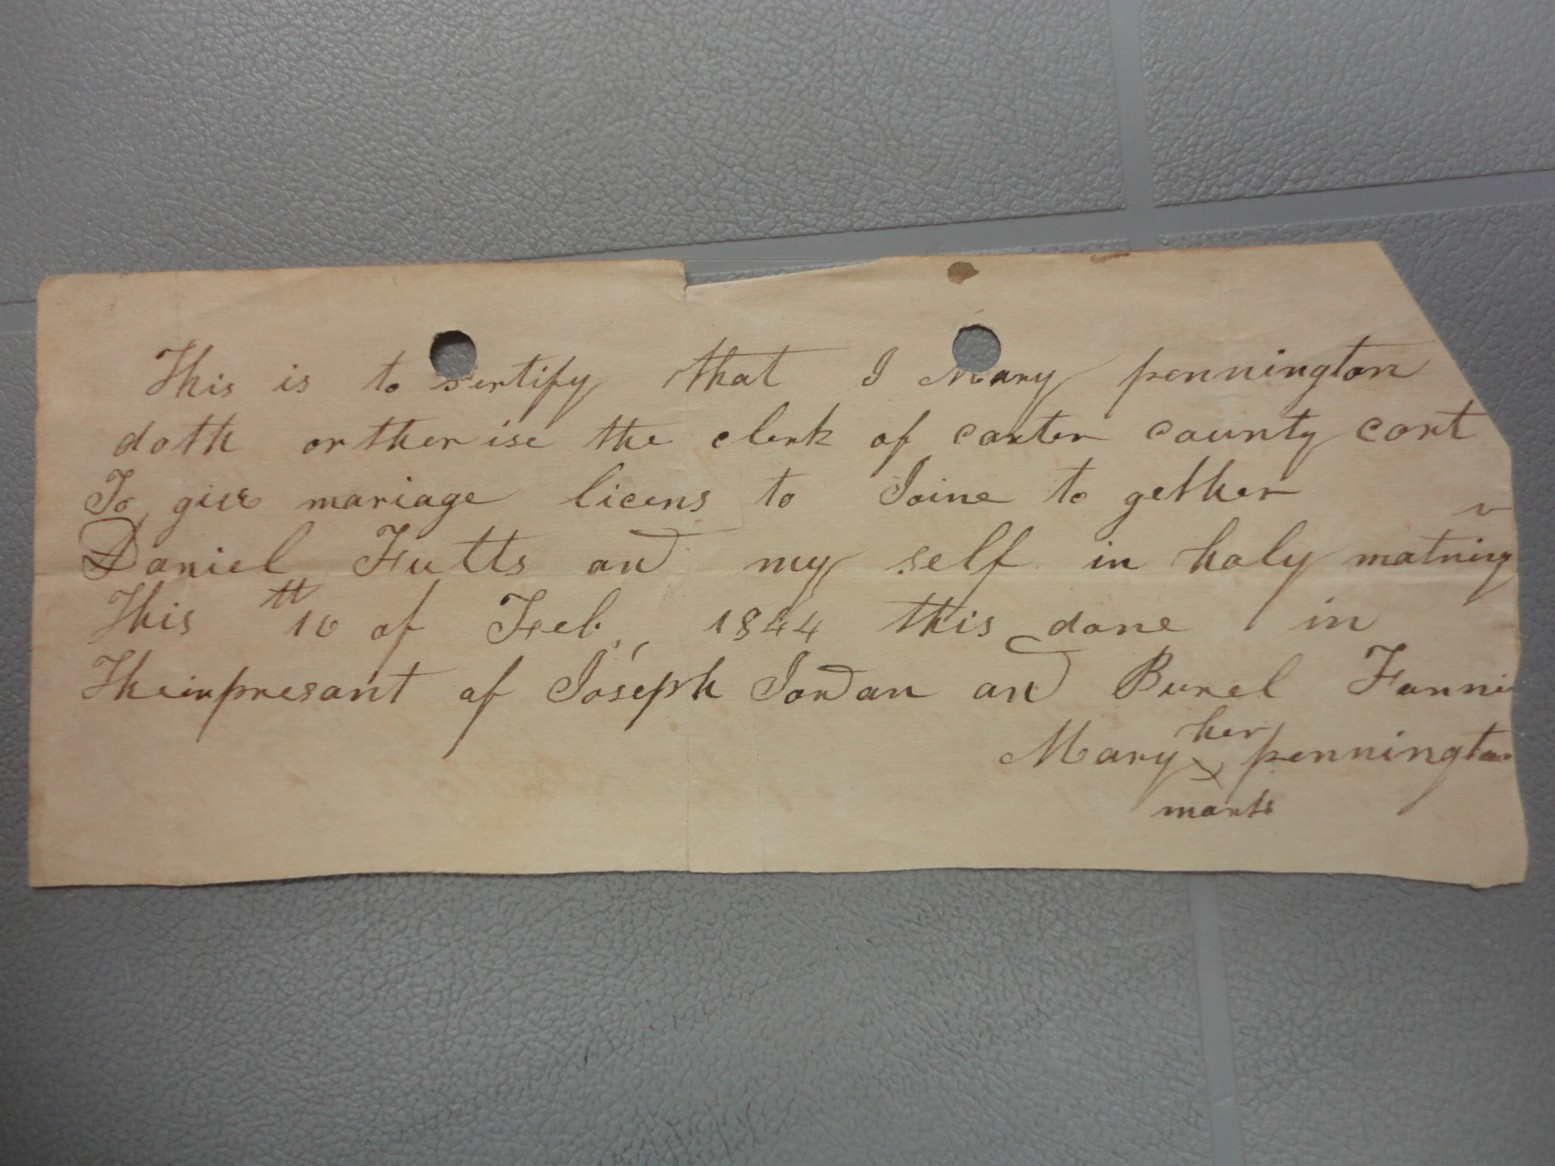 This is to sertify that I Mary pennington
doth ortherise the clerk of carter county cort
To give mariage licens to Joine to gether
Daniel Futts and my self in holy
This 16 tt of Feb. 1844 this done in
Theinpresant of Joseph Jordan and Burel Fanni
Mary her x pennington
mark